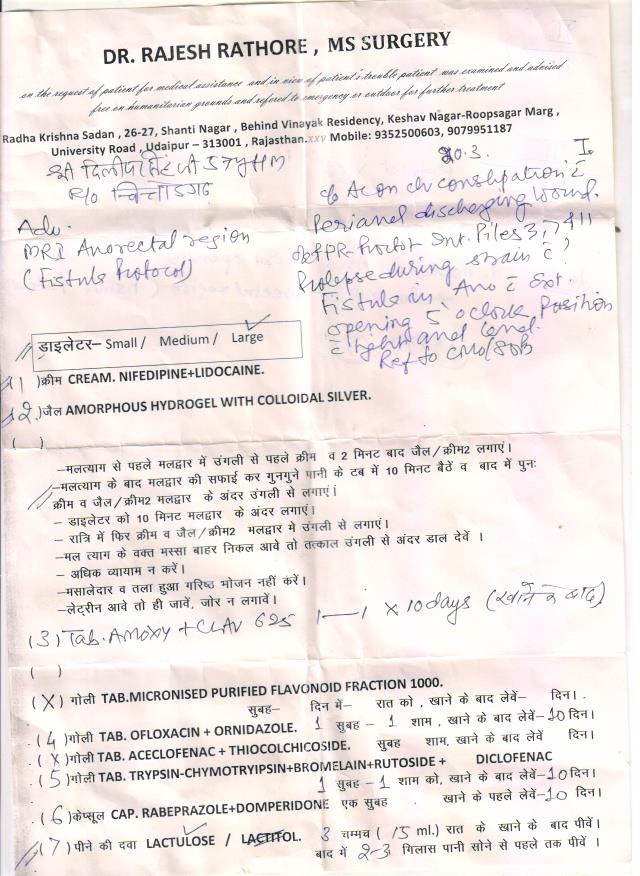 DR. RAJESH RATHORE , MS SURGERY
on the request of patient for medical assistance and in view of patient's trouble patient was examined and advised
free on humanitarian grounds and refered to emergency or outdoor for further treatment
Radha Krishna Sadan , 26-27, Shanti Nagar , Behind Vinayak Residency, Keshav Nagar-Roopsagar Marg ,
University Road , Udaipur – 313001 , Rajasthan.xxv Mobile: 9352500603, 9079951187
20.3.
श्री दिलीप 57y/M
c/o A on ch constipation c̄
perianal discharging wound.
Adv.
MRI Anorectal region
(Fistula Protocol)
Int. Piles 3, 7 & 11
Prolapse during strain c̄
Fistula in Ano c̄ Ext.
opening 5 o'clock Position
Ref to CMO/SOB
डाइलेटर– Small / Medium / Large
(1 )क्रीम CREAM. NIFEDIPINE+LIDOCAINE.
(2.)जैल AMORPHOUS HYDROGEL WITH COLLOIDAL SILVER.
( )
–मलत्याग से पहले मलद्वार में उंगली से पहले क्रीम व 2 मिनट बाद जैल/क्रीम2 लगाएं।
–मलत्याग के बाद मलद्वार की सफाई कर गुनगुने पानी के टब में 10 मिनट बैठें व बाद में पुनः
क्रीम व जैल/क्रीम2 मलद्वार के अंदर उंगली से लगाएं।
– डाइलेटर को 10 मिनट मलद्वार के अंदर लगाएं।
– रात्रि में फिर क्रीम व जैल/क्रीम2 मलद्वार मे उंगली से लगाएं।
–मल त्याग के वक्त मस्सा बाहर निकल आवे तो तत्काल उंगली से अंदर डाल देवें ।
– अधिक व्यायाम न करें।
–मसालेदार व तला हुआ गरिष्ठ भोजन नहीं करें।
–लेट्रीन आवे तो ही जावें, जोर न लगावें।
(3) Tab. AMOXY + CLAV 625 1—1 x 10 days (खाने के बाद)
( )
(X) गोली TAB.MICRONISED PURIFIED FLAVONOID FRACTION 1000.
सुबह– दिन में– रात को , खाने के बाद लेवें– दिन।
(4 )गोली TAB. OFLOXACIN + ORNIDAZOLE. 1 सुबह – 1 शाम , खाने के बाद लेवें–10 दिन।
(X )गोली TAB. ACECLOFENAC + THIOCOLCHICOSIDE. सुबह शाम, खाने के बाद लेवें दिन।
(5 )गोली TAB. TRYPSIN-CHYMOTRYIPSIN+BROMELAIN+RUTOSIDE + DICLOFENAC
1 सुबह –1 शाम को, खाने के बाद लेवें–10 दिन।
(6 )केप्सूल CAP. RABEPRAZOLE+DOMPERIDONE एक सुबह खाने के पहले लेवें–10 दिन।
(7 ) पीने की दवा LACTULOSE / LACTITOL. 3 चम्मच ( 15 ml.) रात के खाने के बाद पीवें।
बाद में 2–3 गिलास पानी सोने से पहले तक पीवें ।